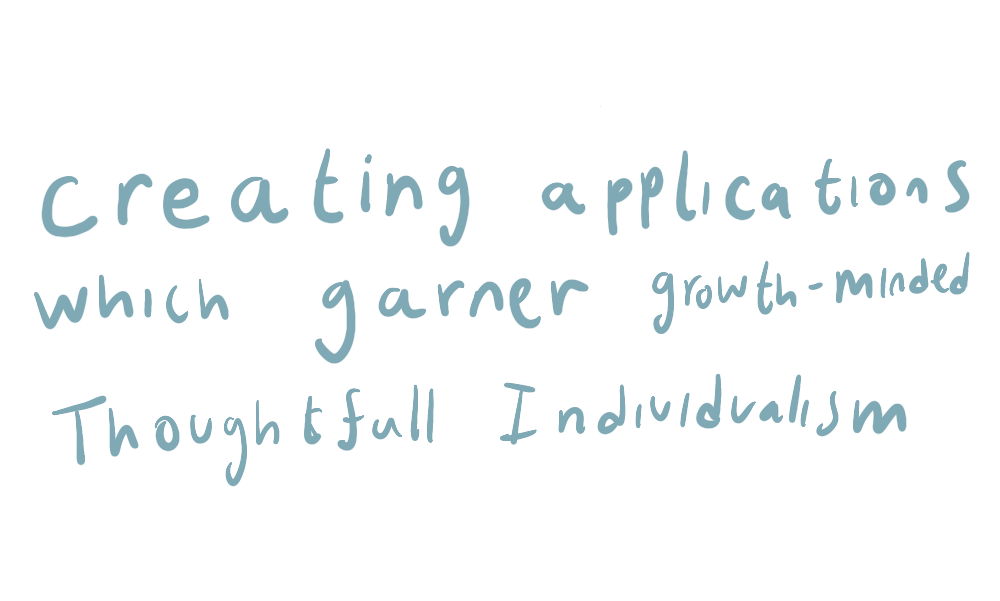 creating applications
which garner growth-minded
Thoughtfull Individualism